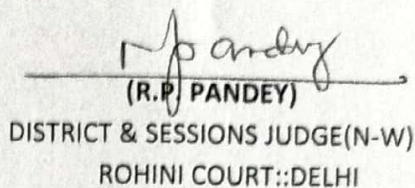 (R.P. PANDEY)
DISTRICT & SESSIONS JUDGE(N-W)
ROHINI COURT::DELHI